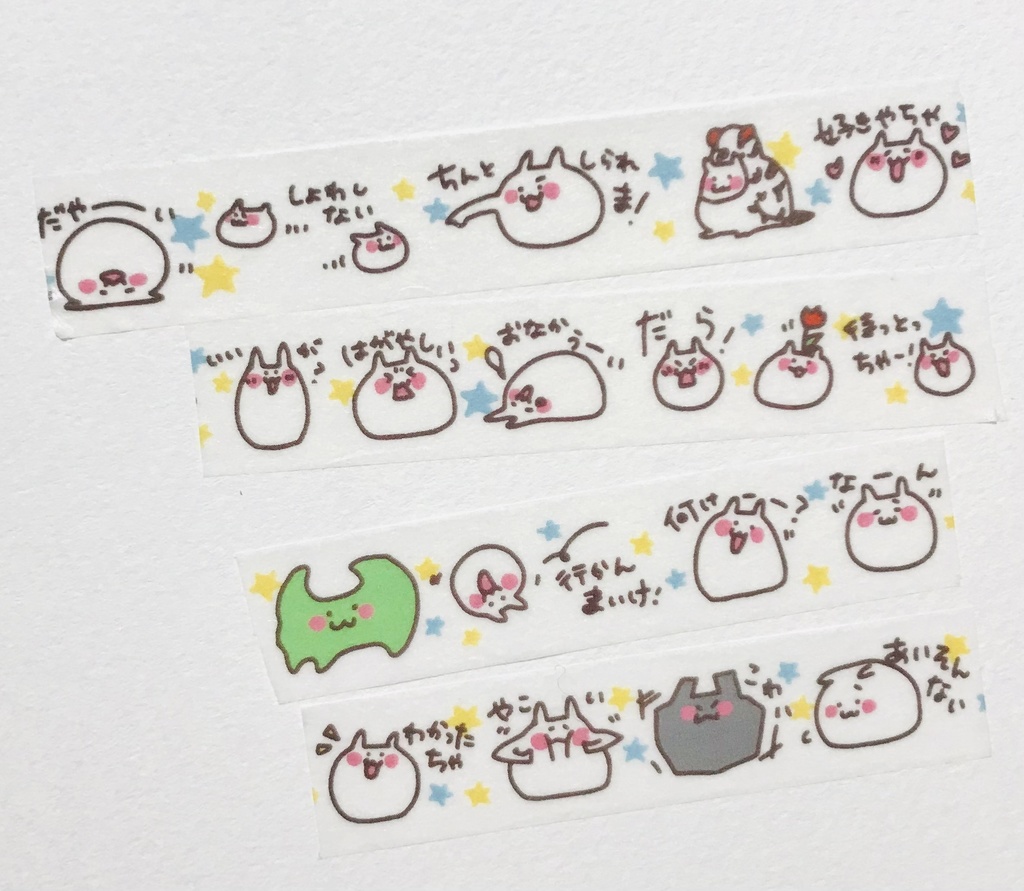 だやー
しょわし
ない
ちんと
しられ
ま!
好きやちゃ
いいが?
はがやしい
おなか
うー
だら!
待っとっ
ちゃー!
行かん
まいけ!
何けー?
なーん
わかった
ちゃ
やこい
こわい
あいそん
ない